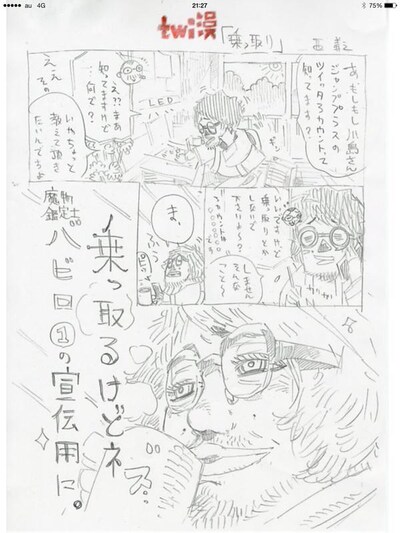 au 4G
21:27
75%
twi漫
「乗っ取り」
あ、もしもし川島さん
ジャンププラスの
ツイッタアカウントって
知ってます?
LED
え??まあ
知ってますけど
…何で?
いやちょっと
教えて頂き
たいんでちょ
ええ
その
いいですけど
乗っ取りとか
しないで
おりよ〜?
しません
そんな
こと〜
カリカリ
ま、
ふぅ
乗っ取るけどネ
魔物鑑定士
バビロ①の宣伝用に。
ズ…